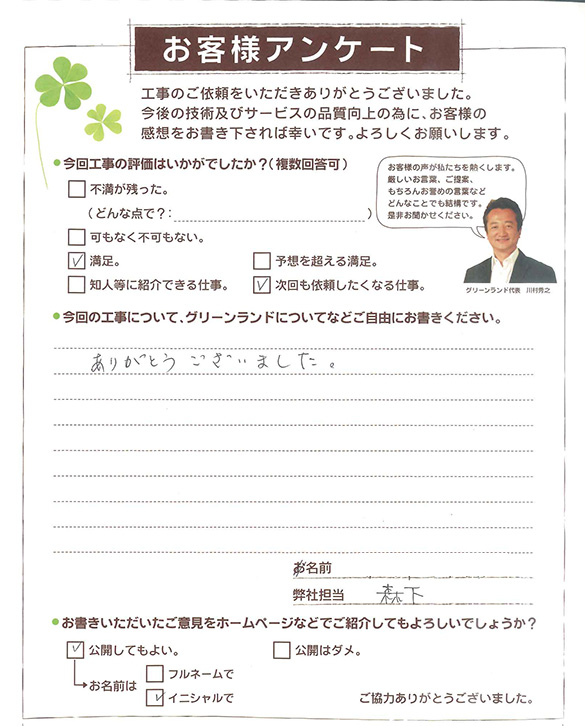 お客様アンケート
工事のご依頼をいただきありがとうございました。
今後の技術及びサービスの品質向上の為に、お客様の
感想をお書き下されば幸いです。よろしくお願いします。
●今回工事の評価はいかがでしたか?(複数回答可)
不満が残った。
(どんな点で?: )
可もなく不可もない。
満足。 予想を超える満足。
知人等に紹介できる仕事。 次回も依頼したくなる仕事。
お客様の声が私たちを熱くします。
厳しいお言葉、ご提案、
もちろんお誉めの言葉など
どんなことでも結構です。
是非お聞かせください。
グリーンランド代表 川村秀之
●今回の工事について、グリーンランドについてなどご自由にお書きください。
ありがとうございました。
お名前
弊社担当 森下
●お書きいただいたご意見をホームページなどでご紹介してもよろしいでしょうか?
公開してもよい。 公開はダメ。
お名前は フルネームで
イニシャルで
ご協力ありがとうございました。